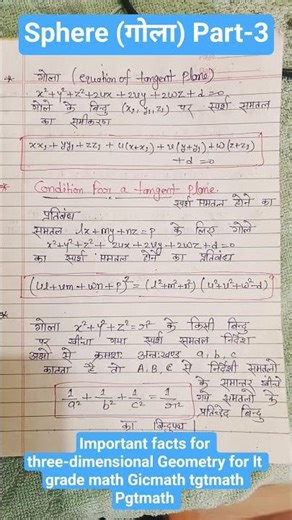 Sphere (गोला) Part-3
* गोला (equation of tangent plane)
x²+y²+z²+2ux+2vy+2wz+d=0
गोले के बिन्दु (x₁, y₁, z₁) पर स्पर्श समतल
का समीकरण
xx₁+yy₁+zz₁+u(x+x₁)+v(y+y₁)+w(z+z₁)
+d=0
Condition for a tangent plane
स्पर्श समतल होने का
प्रतिबंध
समतल lx+my+nz=p के लिए गोले
x²+y²+z²+2ux+2vy+2wz+d=0
का स्पर्श समतल होने का प्रतिबंध
(ul+vm+wn+p)²=(l²+m²+n²)(u²+v²+w²-d)
गोला x²+y²+z²=r² के किसी बिन्दु
पर खींचा गया स्पर्श समतल निर्देश
अक्षों से क्रमशः अन्तःखण्ड a, b, c
काटता है तो A, B, C से निर्देशी समतलों
के समान्तर खींचे
गये समतलों के
प्रतिच्छेद बिन्दु
1/a² + 1/b² + 1/c² = 1/r²
का बिन्दुपथ
Important facts for
three-dimensional Geometry for lt
grade math Gicmath tgtmath
Pgtmath